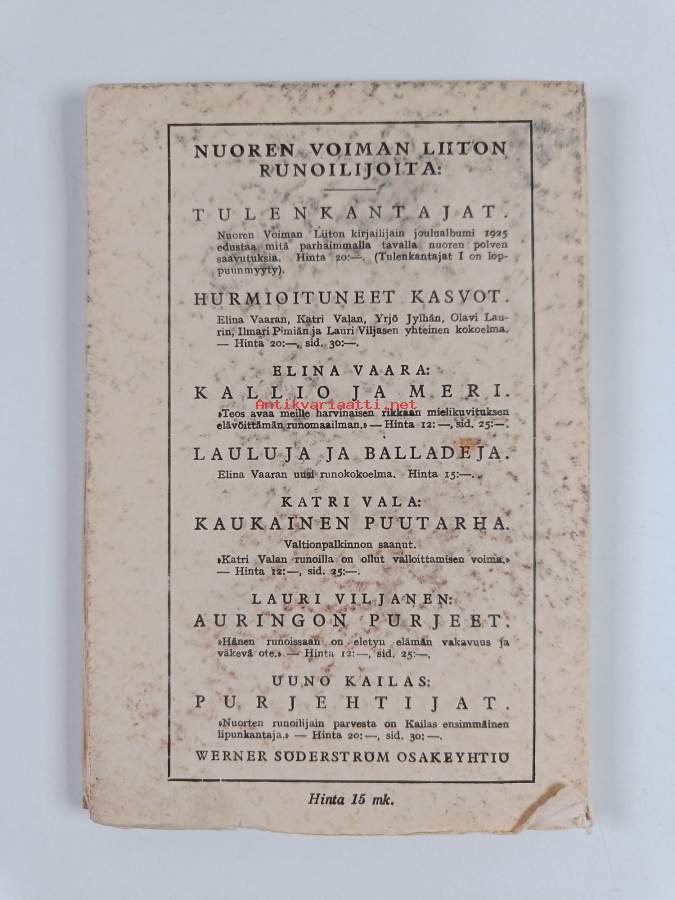 NUOREN VOIMAN LIITON
RUNOILIJOITA:
TULENKANTAJAT.
Nuoren Voiman Liiton kirjailijain joulualbumi 1925
edustaa mitä parhaimmalla tavalla nuoren polven
saavutuksia. Hinta 20:—. (Tulenkantajat I on lop-
puunmyyty).
HURMIOITUNEET KASVOT.
Elina Vaaran, Katri Valan, Yrjö Jylhän, Olavi Lau-
rin, Ilmari Pimiän ja Lauri Viljasen yhteinen kokoelma.
— Hinta 20:—, sid. 30:—.
ELINA VAARA:
KALLIO JA MERI.
Antikvariaatti.net
»Teos avaa meille harvinaisen rikkaan mielikuvituksen
elävöittämän runomaailman.» — Hinta 12:—, sid. 25:—.
LAULUJA JA BALLADEJA.
Elina Vaaran uusi runokokoelma. Hinta 15:—.
KATRI VALA:
KAUKAINEN PUUTARHA.
Valtionpalkinnon saanut.
»Katri Valan runoilla on ollut valloittamisen voima.»
— Hinta 12:—, sid. 25:—.
LAURI VILJANEN:
AURINGON PURJEET.
»Hänen runoissaan on eletyn elämän vakavuus ja
väkevä ote.» — Hinta 12:—, sid. 25:—.
UUNO KAILAS:
PURJEHTIJAT.
»Nuorten runoilijain parvesta on Kailas ensimmäinen
lipunkantaja.» — Hinta 20:—, sid. 30:—.
WERNER SÖDERSTRÖM OSAKEYHTIÖ
Hinta 15 mk.